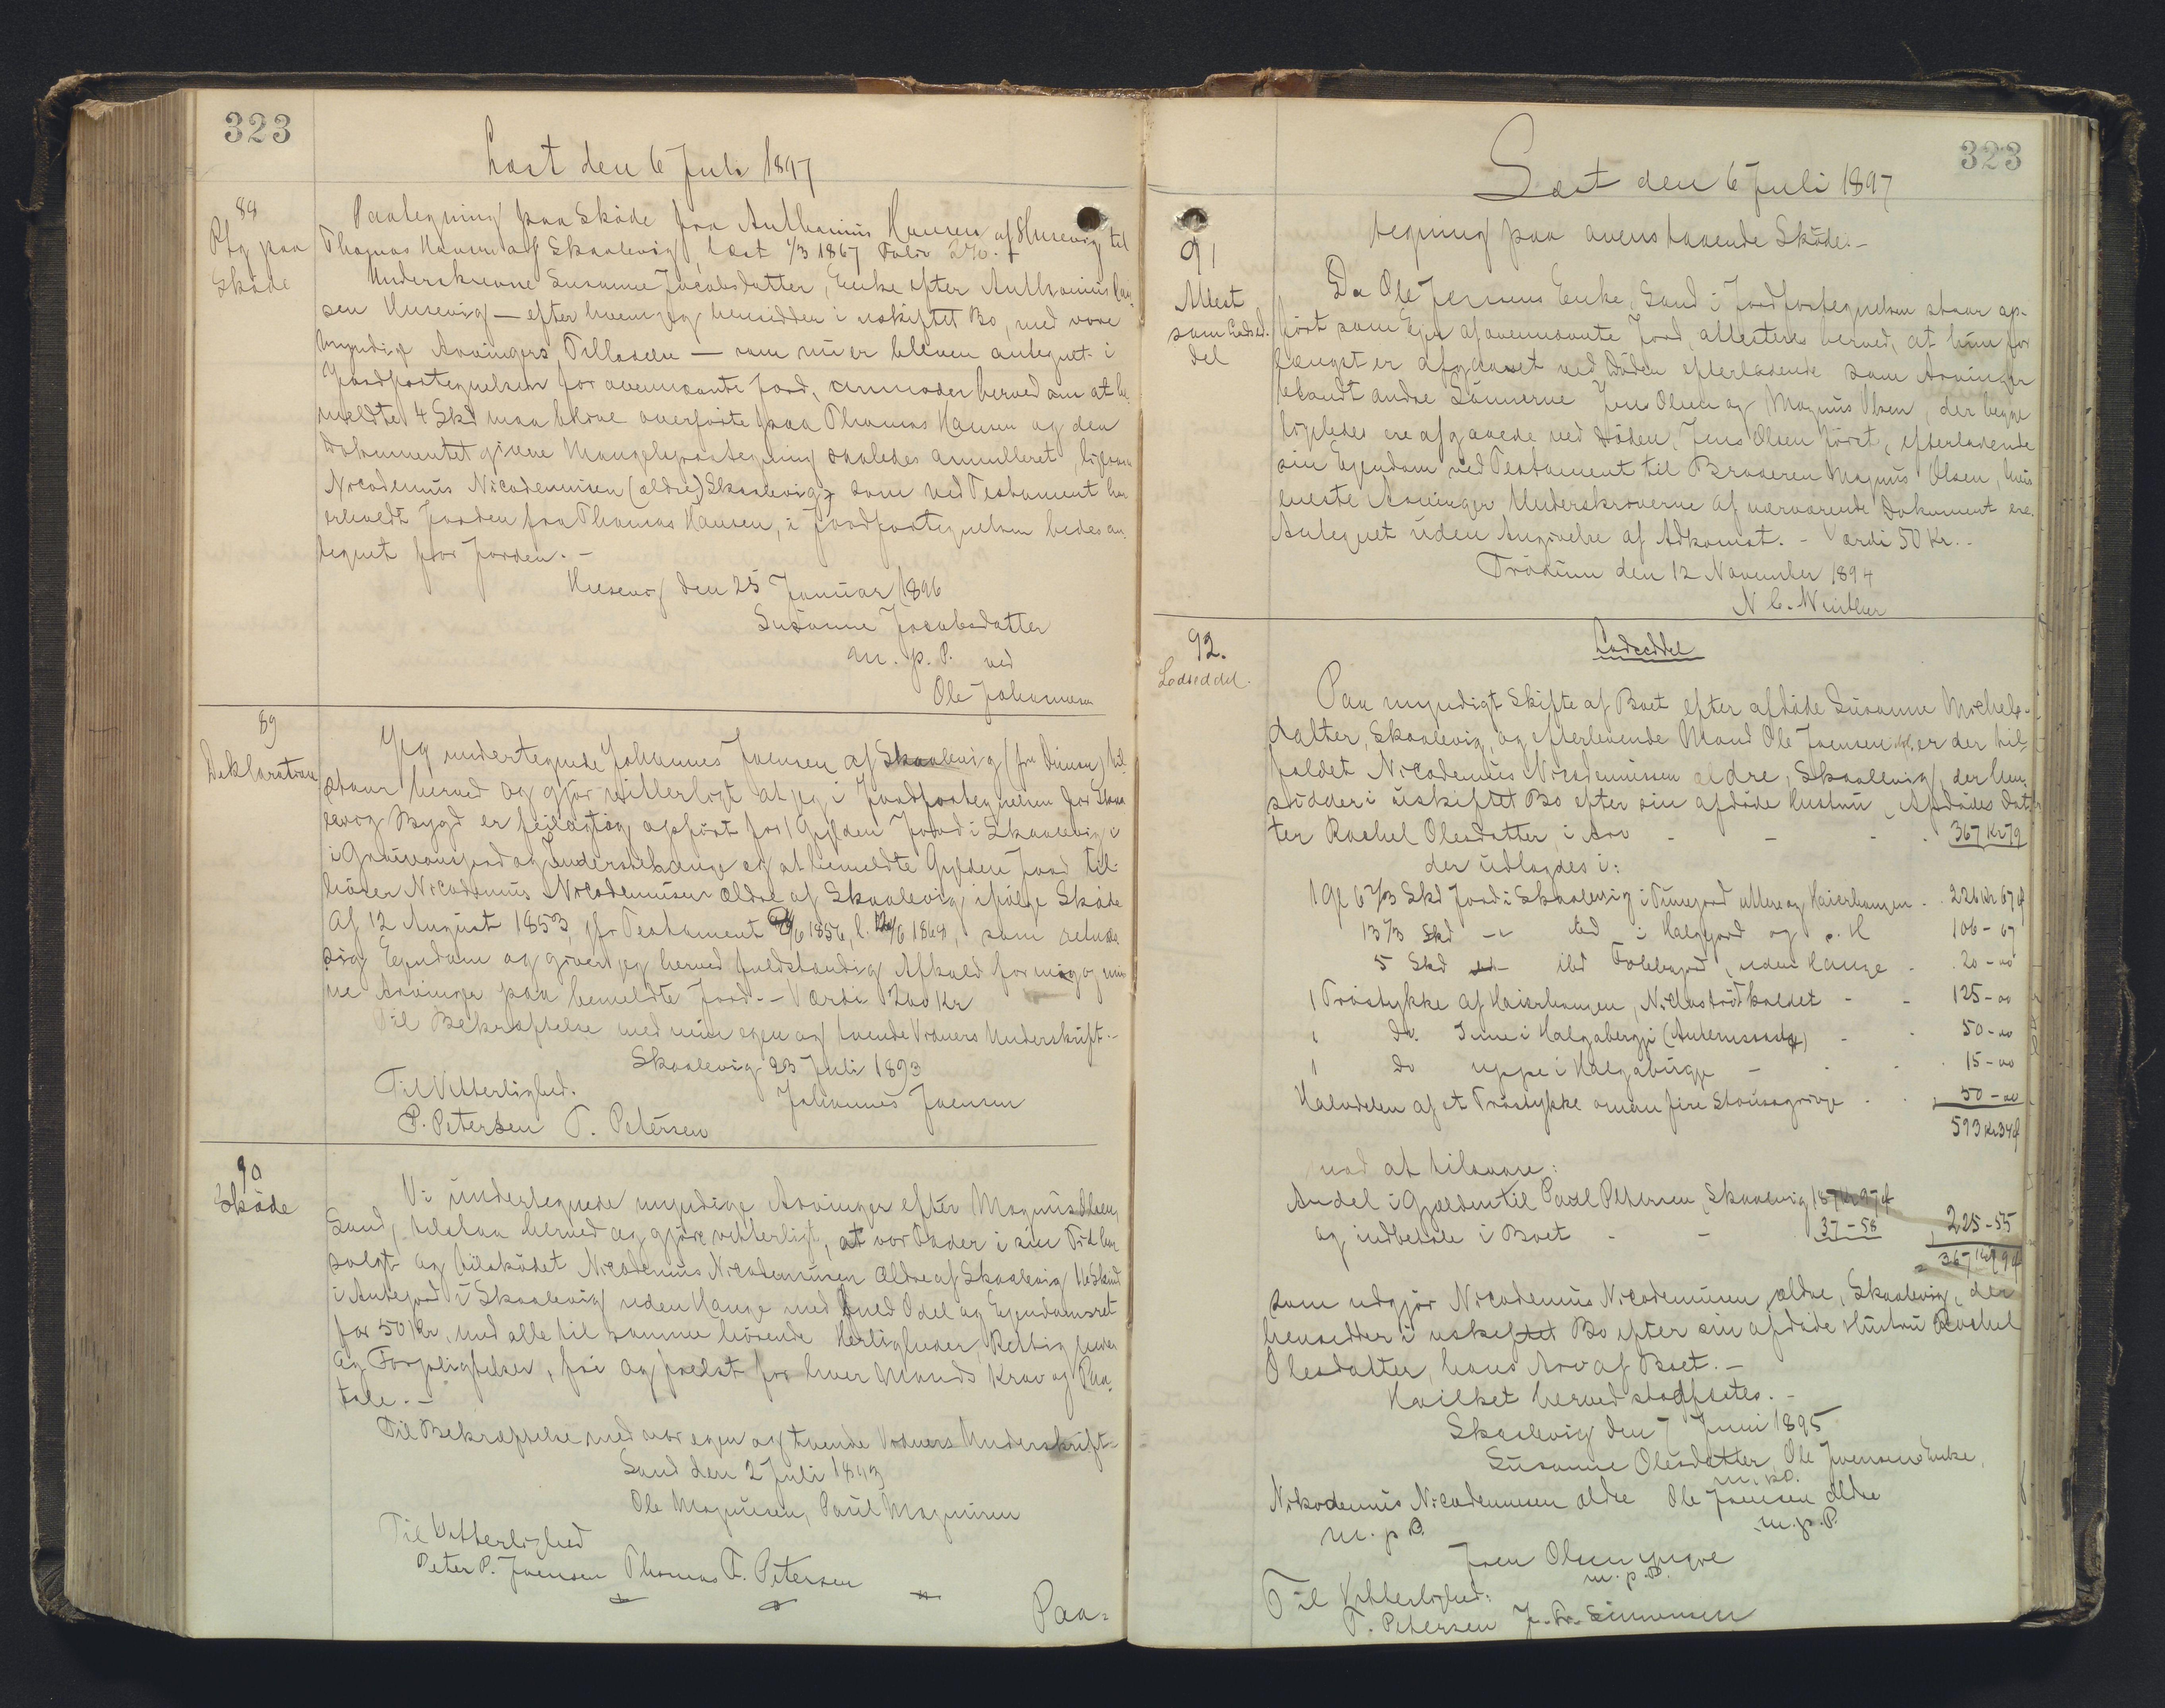 323
Læst den 6 Juli 1897
88
Ptg paa
Skøde
Paategning paa Skøde fra Anthonius Hansen af Husevig til
Thomas Hansen af Skaalevig, læst 1/3 1867 Folio 270.
Underskrevne Susanne Jacobsdatter, Enke efter Anthonius Han-
sen Husevig — efter hvem jeg hensidder i uskiftet Bo, med vore
myndige Arvingers Tilladelse — som nu er bleven antegnet i
Jordfortegnelsen for ovennævnte Jord, anmoder herved om at be-
meldte 4 Skd maa blive overførte paa Thomas Hansen og den
Dokumentet givne Mangelspaategning saaledes annulleret, ligesom
Nicodemus Nicodemusen (ældre) Skaalevig, som ved Testament har
erholdt Jorden fra Thomas Hansen, i Jordfortegnelsen bedes an-
tegnet for Jorden. -
Husevig den 25 Januar 1896
Susanne Jacobsdatter
m. p. P. ved
Ole Johannesen
89
Deklaration
Jeg undertegnede Johannes Joensen af Skaalevig (fra Dimon) til-
staar herved og gjør vitterligt at jeg i Jordfortegnelsen for Skaa-
levig Bygd er feilagtig opført for 1 Gylden Jord i Skaalevig
i og at bemeldte Gylden Jord til-
hører Nicodemus Nicodemusen Ældre af Skaalevig ifølge Skøde
af 12 August 1853, jfr Testament 1856, l. 1868, som
sig Ejendom og giver jeg herved fuldstændig Afkald for mig og mi-
ne Arvinger paa bemeldte Jord. - Værdi 200 Kr
Til Bekræftelse med min egen og tvende Vidners Underskrift. -
Skaalevig 23 Juli 1893
Til Vitterlighed. Johannes Joensen
P. Petersen T. Petersen
90
Skøde
Vi undertegnede myndige Arvinger efter Magnus Olsen,
Sand, tilstaa herved og gjøre vitterligt, at vor Fader i sin Tid har
solgt og tilskødet Nicodemus Nicodemusen Ældre af Skaalevig 16 Skind
i Skaalevig uden Hauge med fuld Odel og Ejendomsret
for 50 Kr, med alle til samme hørende Herligheder, Rettigheder
og Forpligtelser, fri og frelst for hver Mands Krav og Paa-
tale. -
Til Bekræftelse med vor egen og tvende Vidners Underskrift -
Sand den 2 Juli 1893
Ole Magnusen, Paul Magnusen
Til Vitterlighed
Peter P. Joensen Thomas F. Petersen
Paa-
323
Læst den 6 Juli 1897
tegning paa ovenstaaende Skøde. -
91
Attest
som Lodsed-
del
Da Ole Jensens Enke, Sand i Jordfortegnelsen staar op-
ført som Ejer af ovennævnte Jord, attesteres herved, at hun for
længst er afgaaet ved Døden efterladende som Arvinger
iblandt andre Sønnerne Jens Olsen og Magnus Olsen, der begge
ligeledes ere afgaaede ved Døden, Jens Olsen først, efterladende
sin Ejendom ved Testament til Broderen Magnus Olsen, hvis
eneste Arvinger Underskriverne af nærværende Dokument ere.
Antegnet uden Angivelse af Adkomst. - Værdi 50 Kr. -
Trødum den 12 November 1894
N C. Winther
92.
Lodseddel.
Lodseddel
Paa myndigt Skifte af Boet efter afdøde Susanne Michels-
datter, Skaalevig, og efterlevende Mand Ole Joensen er der til-
faldet Nicodemus Nicodemusen ældre, Skaalevig, der hen-
sidder i uskiftet Bo efter sin afdøde Hustru, Afdødes Dat-
ter Rachel Olesdatter, i Arv - - - . 367 Kr 79
der udlagdes i:
1 Gl 6 2/3 Skd Jord i Skaalevig i . 226 Kr 67 Ø
13 1/3 Skd -"- ibd i og 106 - 67
5 Skd ibd uden Hauge - . 20 - 00
1 Træstykke af - - 125 - 00
1 do. - . 50 - 00
1 do - . . 15 - 00
Halvdelen af et Træstykke . . 50 - 00
593 Kr 34 Ø
mod at tilsvare:
Andel i Gjælden til Poul Petersen, Skaalevig 187 Kr 97 Ø
og indbetale i Boet - - 37 - 58 225 - 55
367 Kr 79 Ø
som udgjør Nicodemus Nicodemusen ældre, Skaalevig, der
hensidder i uskiftet Bo efter sin afdøde Hustru Rachel
Olesdatter, hans Arv af Boet. -
Hvilket herved stadfæstes. -
Skaalevig den 7 Juni 1895
Susanne Olesdatter, Ole Joensens Enke,
m. p. P.
Nikodemus Nicodemusen ældre Ole Joensen ældre
m. p. P. m. p. P.
Joen Olsen yngre
m. p. P.
Til Vitterlighed:
T. Petersen J. Fr. Simonsen